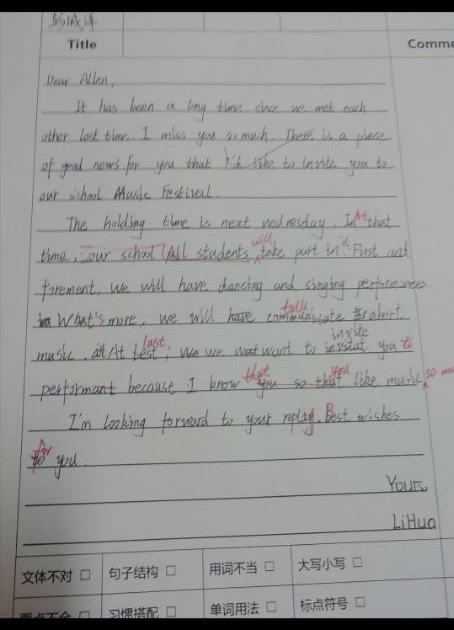 Title
Comme
Dear Allen,
It has been a long time since we met each
other last time. I miss you so much. There is a piece
of good news for you that I'd like to invite you to
our school Music Festival.
The holding time is next wednesday. In At that
time, our school (All students will take part in it. First and
forement, we will have dancing and singing performances
in What's more, we will have talk communicate
music. At best, last we want to invite you to
performant because I know that you so that you like music so mu
I'm looking forward to your replay. Best wishes
to for you.
Yours,
LiHua
文体不对 □ 句子结构 □ 用词不当 □ 大写小写 □
要点不全 □ 习惯搭配 □ 单词用法 □ 标点符号 □